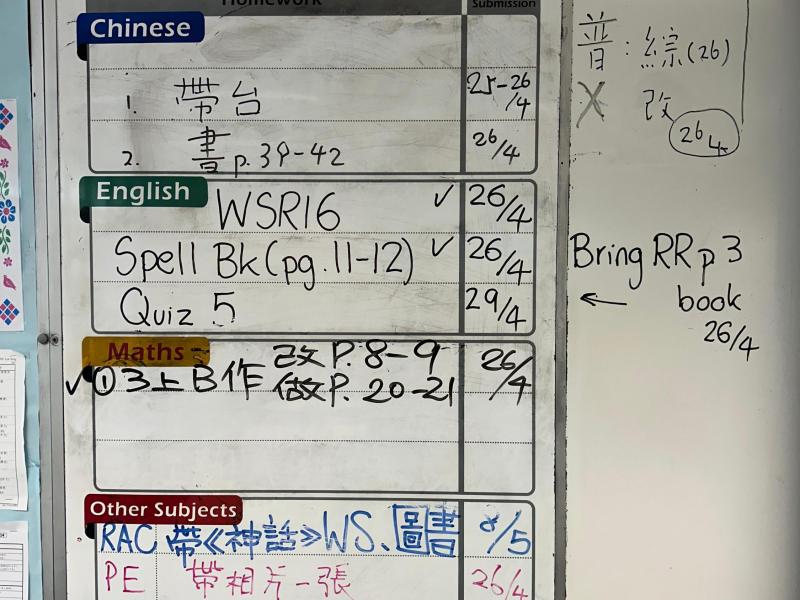 Homework
Submission
Chinese
1. 帶台 25-26/4
2. 書p.39-42 26/4
English
WSR16 ✓ 26/4
Spell Bk(pg.11-12) ✓ 26/4
Quiz 5 29/4
Maths
改P.8-9 26/4
✓①3上B作 做P.20-21
Other Subjects
RAC 帶《神話》WS、圖書 8/5
PE 帶相片一張 26/4
普:綜(26)
X 改
26/4
Bring RR p3
← book
26/4